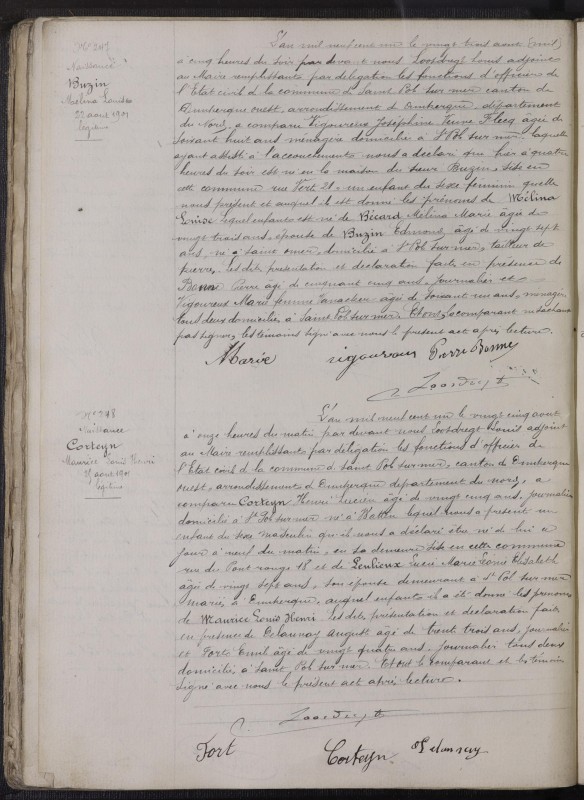 N° 247
Naissance
Buzin
Mélina Louise
22 aout 1901
légitime
L'an mil neuf cent un le vingt trois aout (mil)
à cinq heures du soir par devant nous Loosdregt Louis adjoint
au Maire remplissant par delegation les fonctions d'officier de
l'Etat civil de la commune de Saint Pol sur mer canton de
Dunkerque ouest, arrondissement de Dunkerque, département
du Nord, a comparu Vigoureux Joséphine Veuve Flecq âgée de
soixante huit ans ménagère domiciliée à St Pol sur mer laquelle
ayant assisté à l'accouchement nous a déclaré que hier à quatre
heures du soir est né en la maison du sieur Buzin, sise en
cette commune rue Vort 21, un enfant du sexe feminin quelle
nous présent et auquel il est donné les prénoms de Mélina
Louise lequel enfant est né de Bécard Mélina Marie âgée de
vingt trois ans, épouse de Buzin Edmond, âgé de vingt sept
ans, né à Saint Omer, domicilié à St Pol sur mer, tailleur de
pierre. Les dites presentation et declaration faites en présence de
Bonne Pierre agé de cinquant cinq ans, journalier et
Vigoureux Marie femme Vanacker agée de soixant un ans, ménagère
tous deux domiciliés à Saint Pol sur mer. Et ont, la comparant ne sachant
pas signer, les témoins signé avec nous le présent act après lecture.
Marie vigoureux Pierre Bonne
Loosdregt
N° 248
Naissance
Corteyn
Maurice Louis Henri
25 aout 1901
légitime
L'an mil neuf cent un le vingt cinq aout
à onze heures du matin par devant nous Loosdregt Louis adjoint
au Maire remplissant par delegation les fonctions d'officier de
l'Etat civil de la commune de Saint Pol sur mer, canton de Dunkerque
ouest, arrondissement de Dunkerque departement du nord, a
comparu Corteyn Henri Lucien âgé de vingt cinq ans, journalier
domicilié à St Pol sur mer né à Watten lequel nous a présent un
enfant du sexe masculin qu'il nous a déclaré être né de lui a
jour à neuf du matin, en sa demeure sise en cette commune
rue du Pont rouge 18 et de Leulieux Lucie Marie Louis Elisabeth
âgée de vingt sept ans, son épouse demeurant à St Pol sur mer
marié, à Dunkerque, auquel enfant il a été donné les prenoms
de Maurice Louis Henri. Les dites présentation et declaration faites
en presence de Delaunay august agé de trent trois ans, journalier
et Fort Emil âgé de vingt quatre ans, journalier tous deux
domiciliés à Saint Pol sur mer. Et ont le comparant et les témoins
signé avec nous le présent act après lecture.
Loosdregt
Fort Corteyn Delaunay